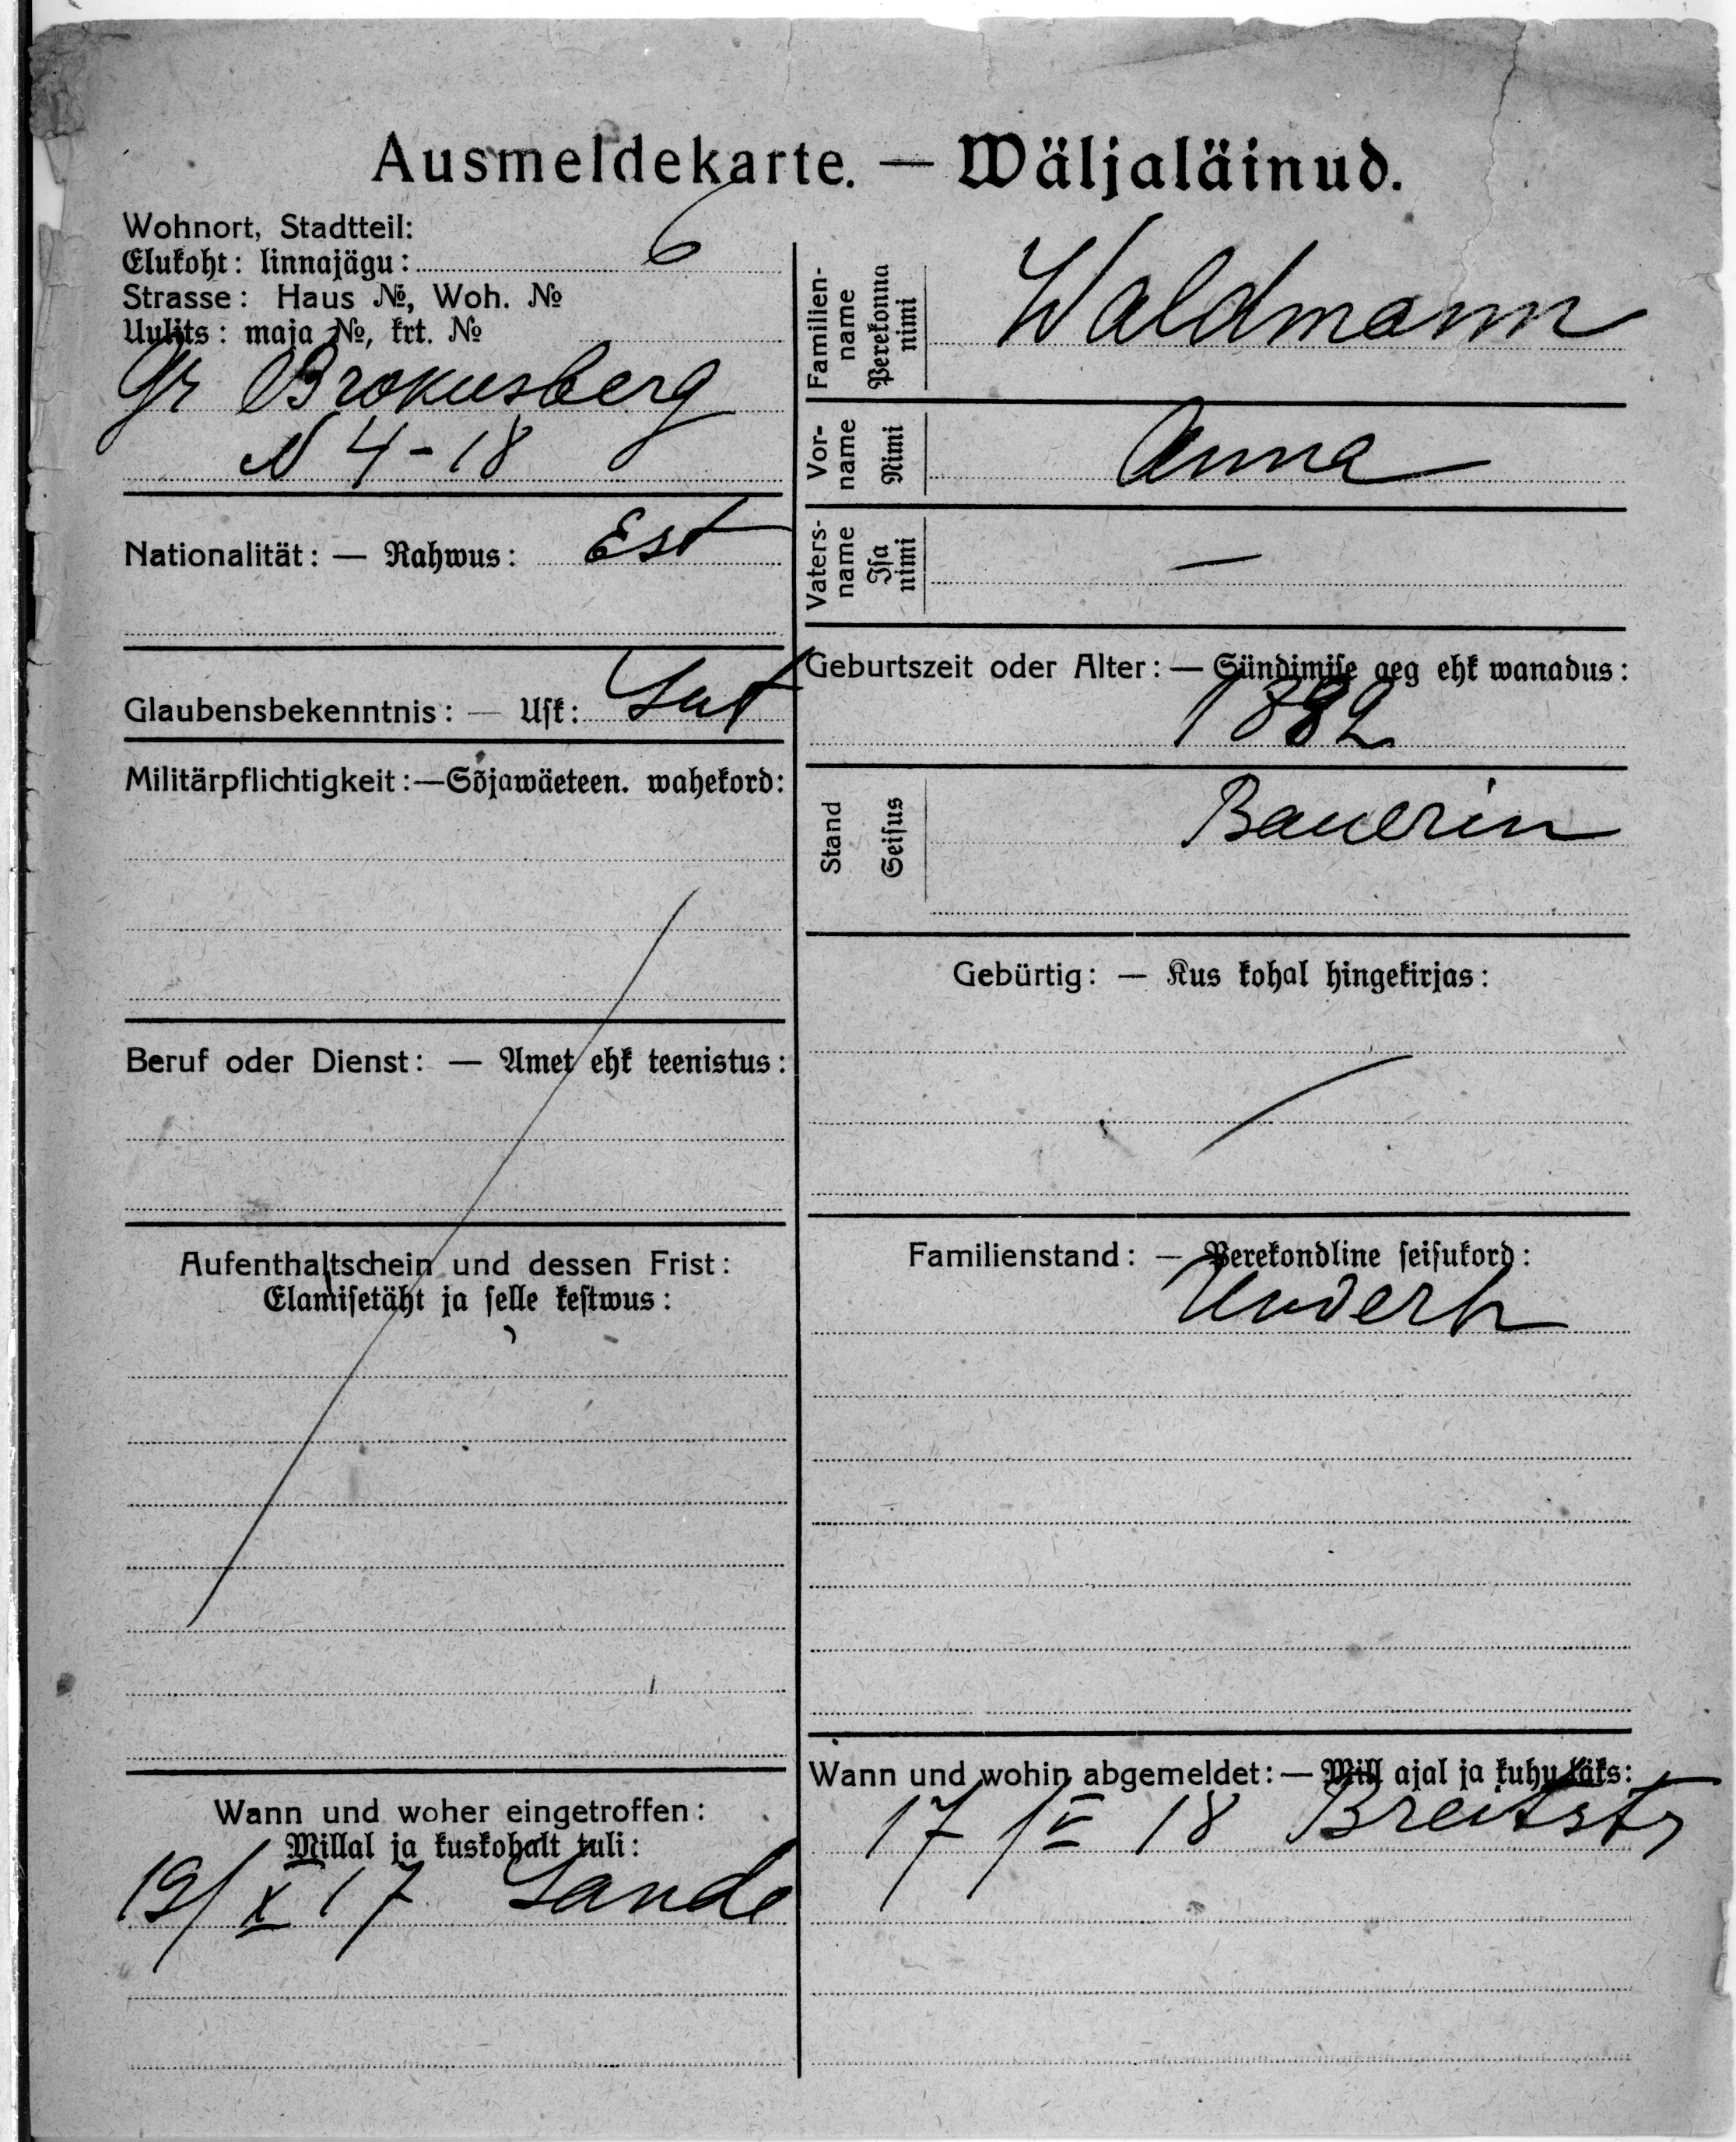 Ausmeldekarte. — Wäljaläinud.
Wohnort, Stadtteil:
Elukoht: linnajägu: 6
Strasse: Haus №, Woh. №
Uulits: maja №, krt. №
Gr Brokusberg
N 4-18
Nationalität: — Rahwus: Est
Glaubensbekenntnis: — Usk: Lut
Militärpflichtigkeit:—Sõjawäeteen. wahekord:
Beruf oder Dienst: — Amet ehk teenistus:
Aufenthaltschein und dessen Frist:
Elamisetäht ja selle kestwus:
Wann und woher eingetroffen:
Millal ja kuskohalt tuli:
19/X 17 Lande
Familien-
name
Perekonna
nimi
Waldmann
Vor-
name
Nimi
Anna
Vaters-
name
Isa
nimi
—
Geburtszeit oder Alter: — Sündimise aeg ehk wanadus:
1882
Stand
Seisus
Bauerin
Gebürtig: — Kus kohal hingekirjas:
Familienstand: — Perekondline seisukord:
Unverh
Wann und wohin abgemeldet: — Mill ajal ja kuhu läks:
17/V 18 Breitstr